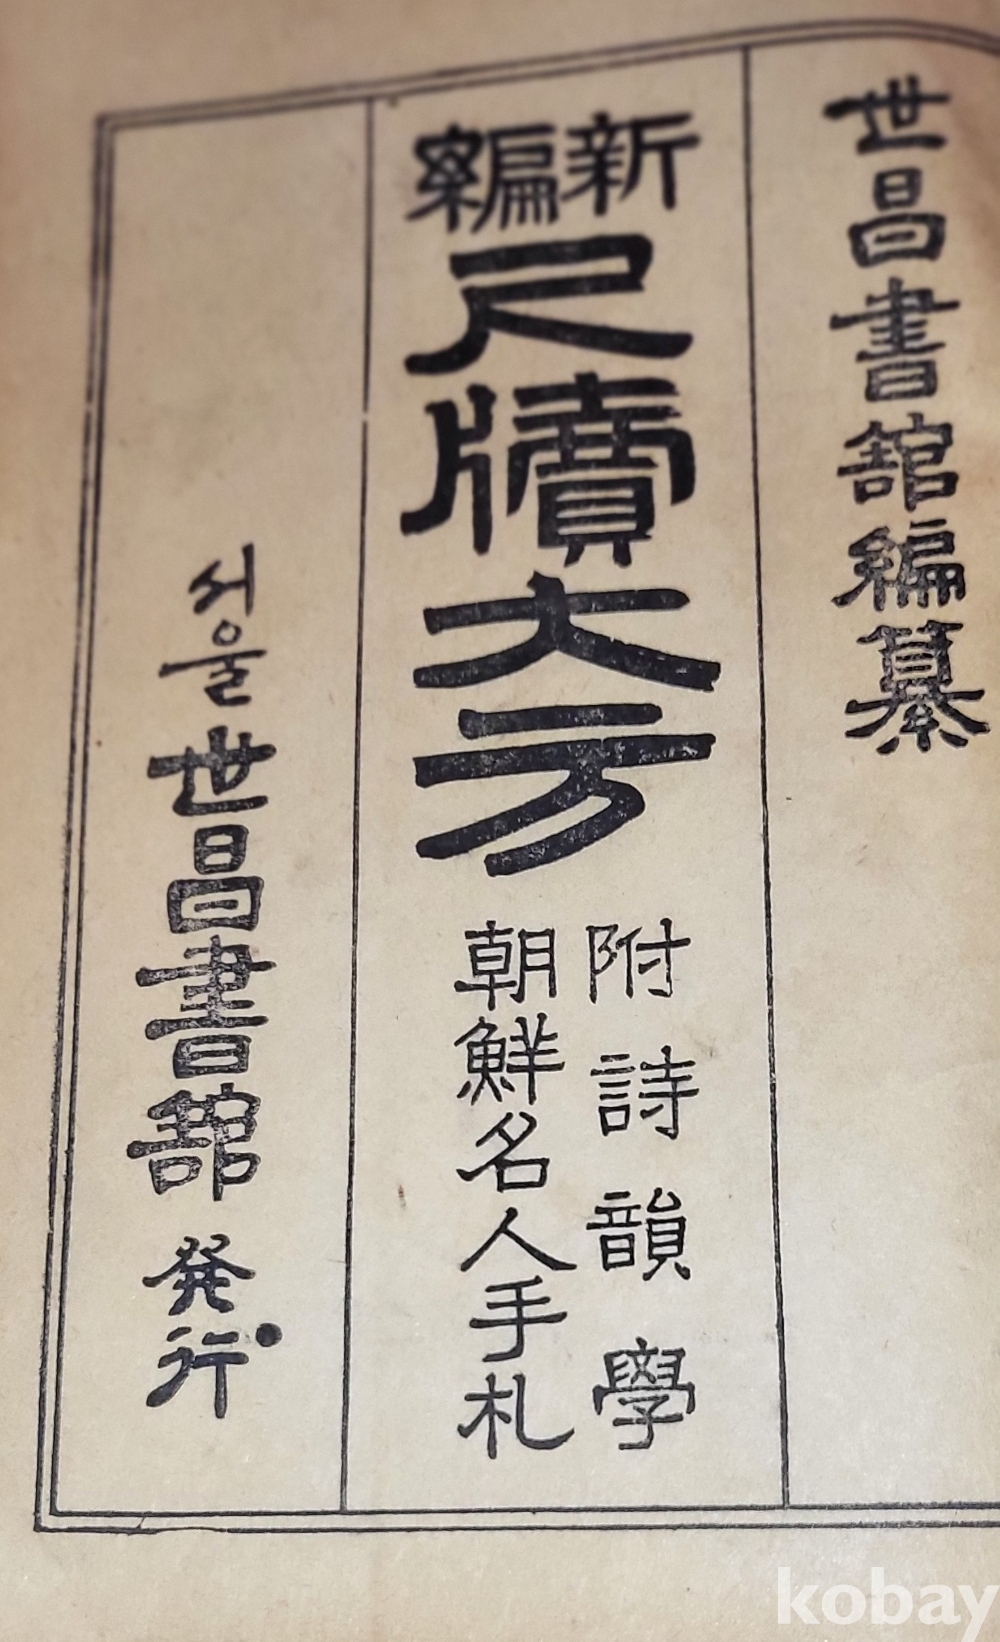 世昌書館編纂
新編
尺牘大方
附詩韻學
朝鮮名人手札
서울 世昌書館 発行
kobay